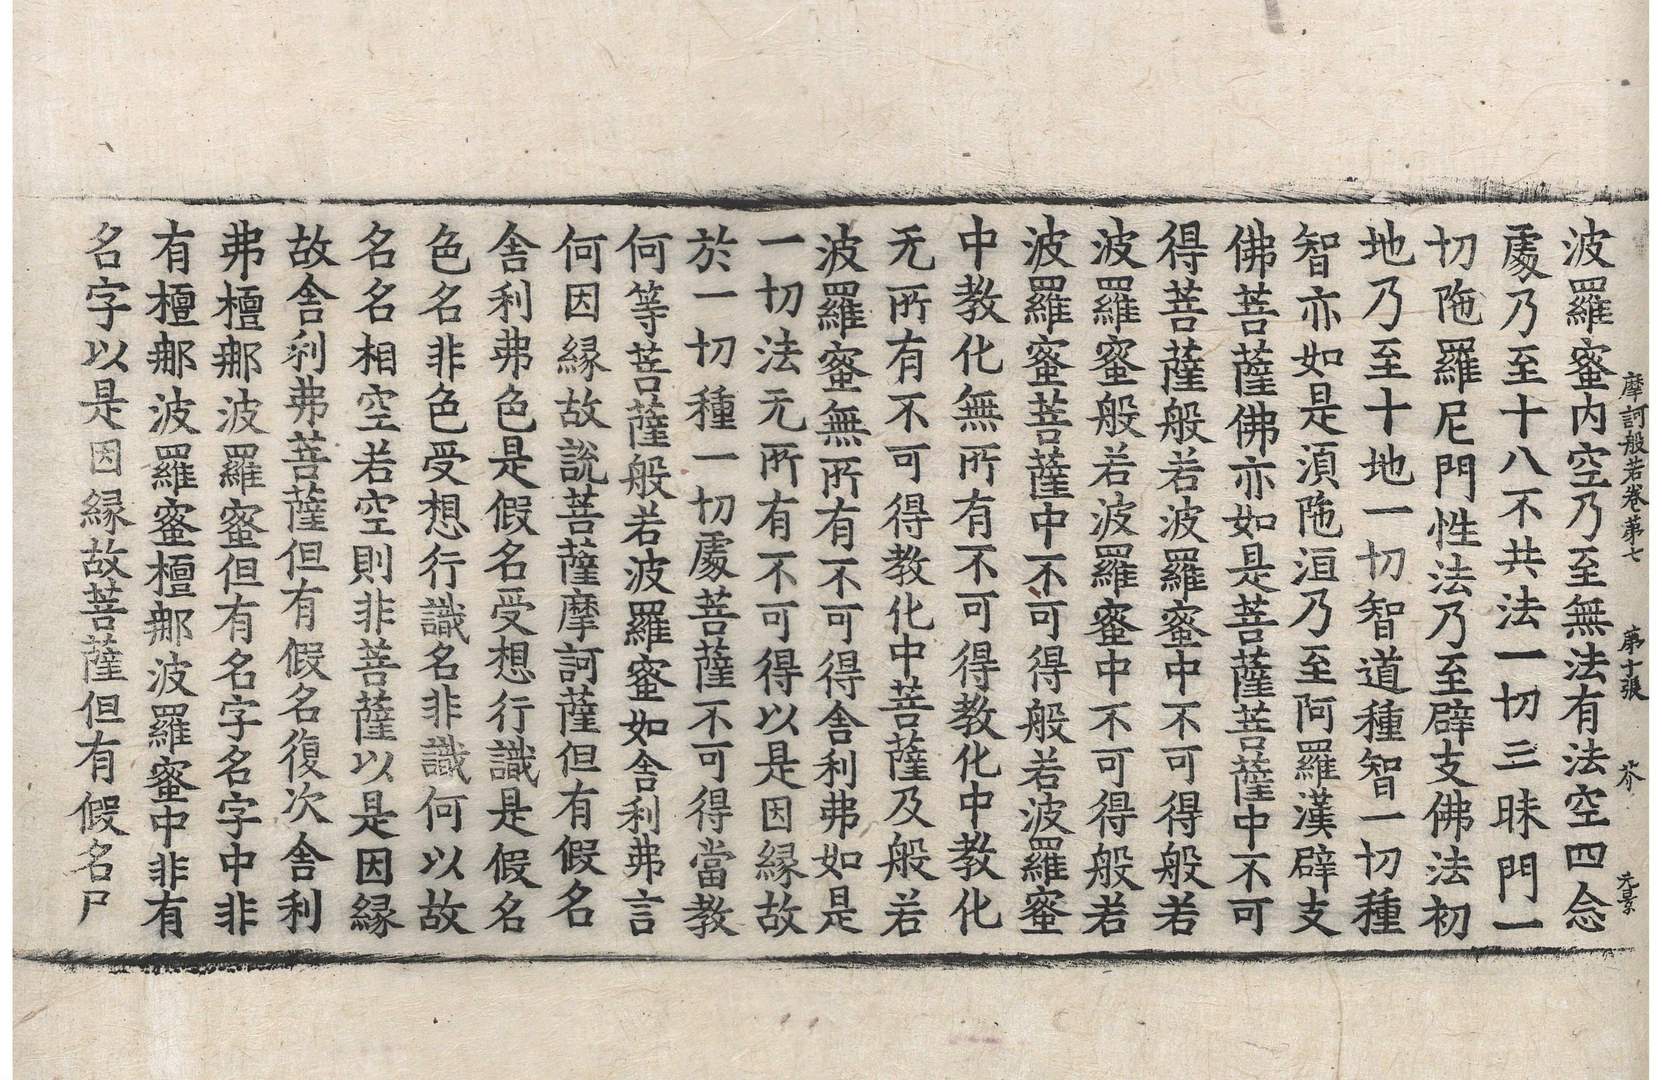 摩訶般若卷第七 第十張 芥 元景
波羅蜜內空乃至無法有法空四念
處乃至十八不共法一切三昧門一
切陁羅尼門性法乃至辟支佛法初
地乃至十地一切智道種智一切種
智亦如是湏陁洹乃至阿羅漢辟支
佛菩薩佛亦如是菩薩菩薩中不可
得菩薩般若波羅蜜中不可得般若
波羅蜜般若波羅蜜中不可得般若
波羅蜜菩薩中不可得般若波羅蜜
中教化無所有不可得教化中教化
无所有不可得教化中菩薩及般若
波羅蜜無所有不可得舍利弗如是
一切法无所有不可得以是因緣故
於一切種一切處菩薩不可得當教
何等菩薩般若波羅蜜如舍利弗言
何因緣故說菩薩摩訶薩但有假名
舍利弗色是假名受想行識是假名
色名非色受想行識名非識何以故
名名相空若空則非菩薩以是因緣
故舍利弗菩薩但有假名復次舍利
弗檀那波羅蜜但有名字名字中非
有檀那波羅蜜檀那波羅蜜中非有
名字以是因緣故菩薩但有假名尸